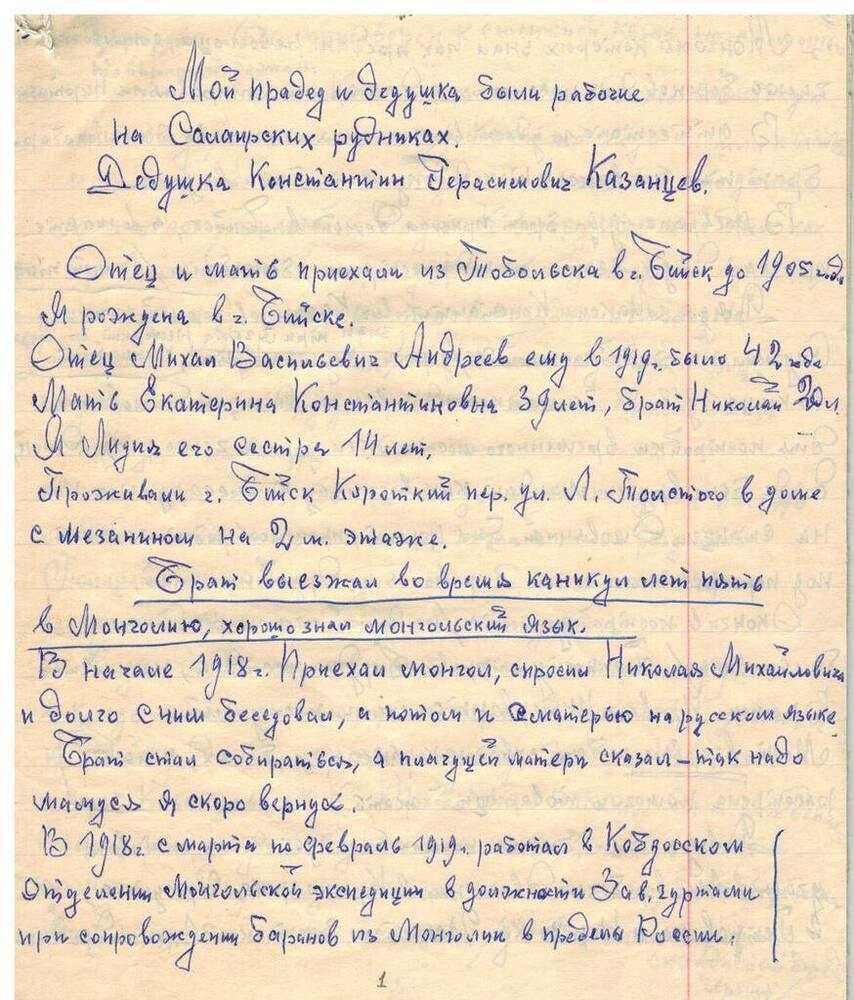 Мой прадед и дедушка были рабочие
на Салаирских рудниках.
Дедушка Константин Герасимович Казанцев.
Отец и мать приехали из Тобольска в г. Бийск до 1905 года.
Я рождена в г. Бийске.
Отец Михал Васильевич Андреев ему в 1919г. было 42 года
Мать Екатерина Константиновна 39 лет, брат Николай 20 л.
Я Лидия его сестра 14 лет.
Проживали г. Бийск Короткий пер. ул. Л. Толстого в доме
с мезанином на 2 м. этаже.
Брат выезжал во время каникул лет пять
в Монголию, хорошо знал монгольский язык.
В начале 1918 г. Приехал монгол, спросил Николая Михайловича
и долго с ним беседовал, а потом и с матерью на русском языке
Брат стал собираться, и плачущей матери сказал – так надо
мамуся я скоро вернусь.
В 1918 г. с марта по февраль 1919г. работал в Кобдовском
отделении Монгольской экспедиции в должности Зав. гуртами
при сопровождении баранов из Монголии в пределы России.
1